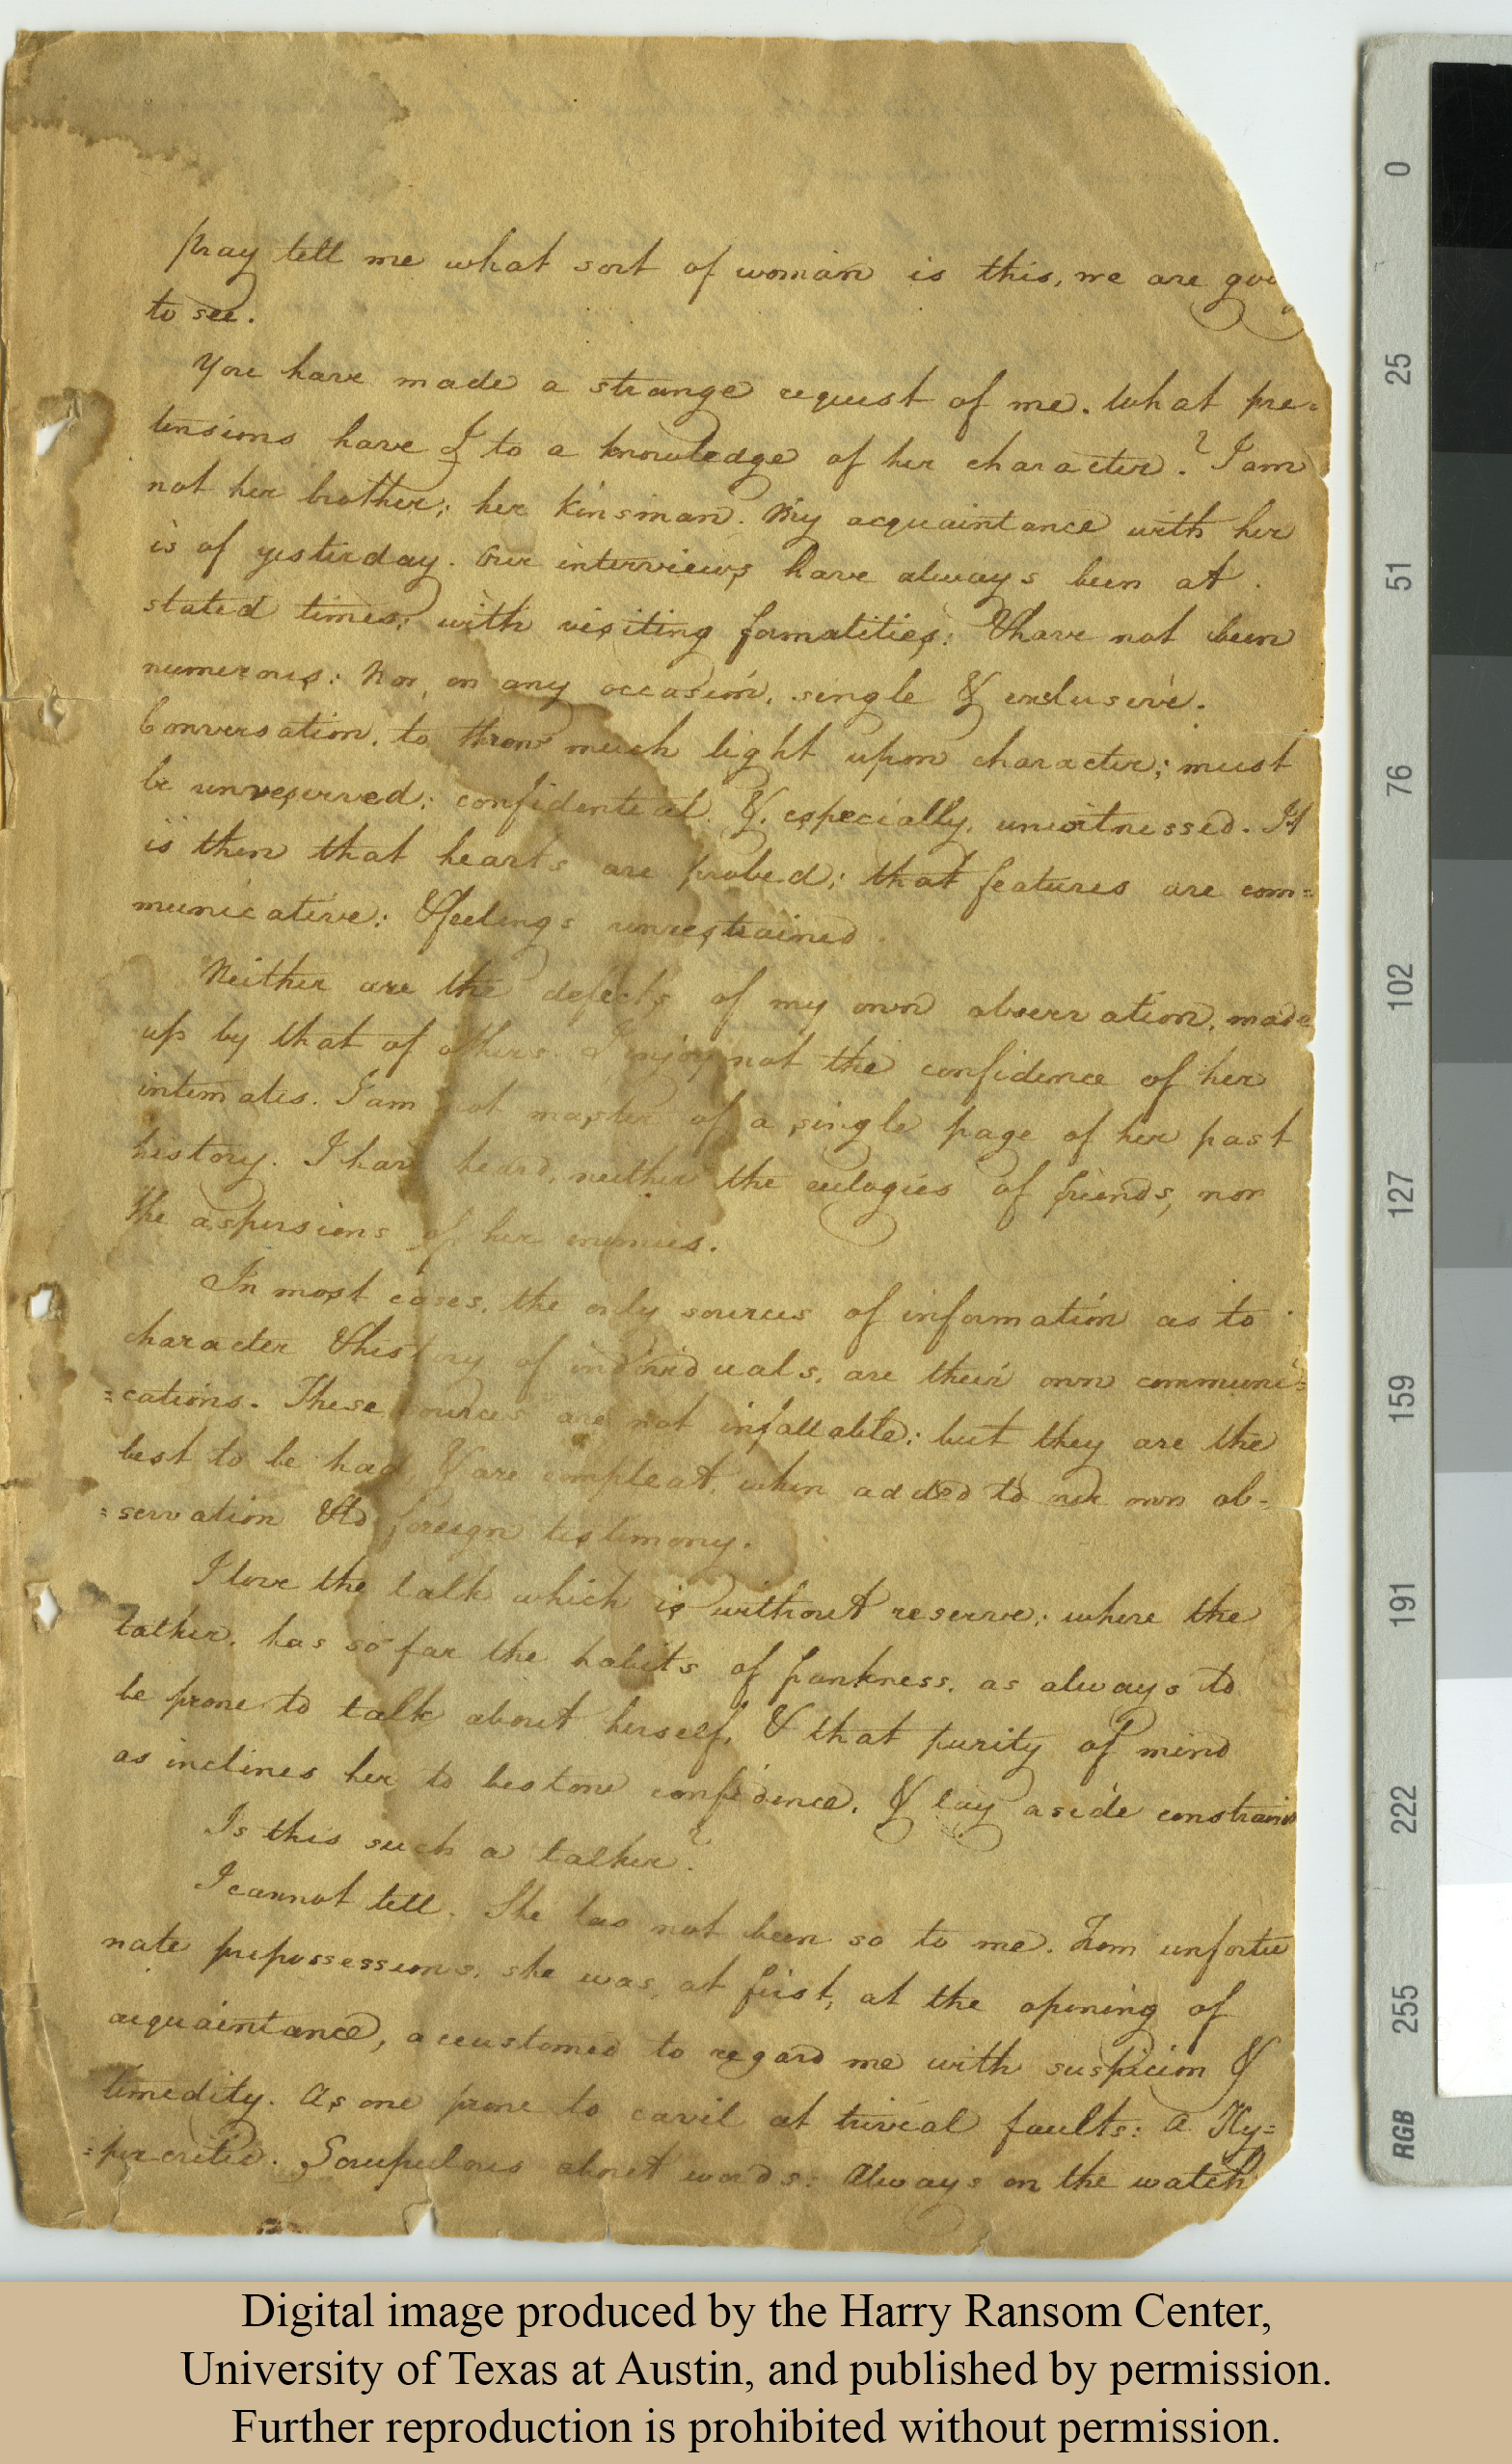 pray tell me what sort of woman is this, we are
to see.
You have made a strange request of me. What pre=
tensions have I to a knowledge of her character.? I am
not her brother; her kinsman. My acquaintance with her
is of yesterday. Our interviews have always been at
stated times; with visiting formalities; & have not been
numerous: Nor, on any occasion, single & exclusive.
Conversation, to throw much light upon character; must
be unreserved; confidential. &, especially, unwitnessed. It
is then that hearts are probed; that features are com=
municative; & feelings unrestrained.
Neither are the defects of my own observation, made
up by that of others. I enjoy not the confidence of her
intimates. I am not master of a single page of her past
history. I have heard, neither the eulogies of friends, nor
the aspersions of her enemies.
In most cases, the only sources of information as to
character & history of individuals, are their own communi=
=cations. These sources are not infallable; but they are the
best to be had, & are compleat, when added to our own ob-
=servation & to foreign testimony.
I love the talk which is without reserve; where the
talker, has so far the habits of frankness, as always to
be prone to talk about herself, & that purity of mind
as inclines her to bestow confidence, & lay aside constraint
Is this such a talker?
I cannot tell. She has not been so to me. From unfortu
nate prepossessions, she was, at first, at the opening of
acquaintance, accustomed to regard me with suspicion &
timidity. As one prone to cavil at trivial faults: A Hy=
=percritic. Scrupulous about words: Always on the watch
Digital image produced by the Harry Ransom Center,
University of Texas at Austin, and published by permission.
Further reproduction is prohibited without permission.
0
25
51
76
102
127
159
191
222
255
RGB